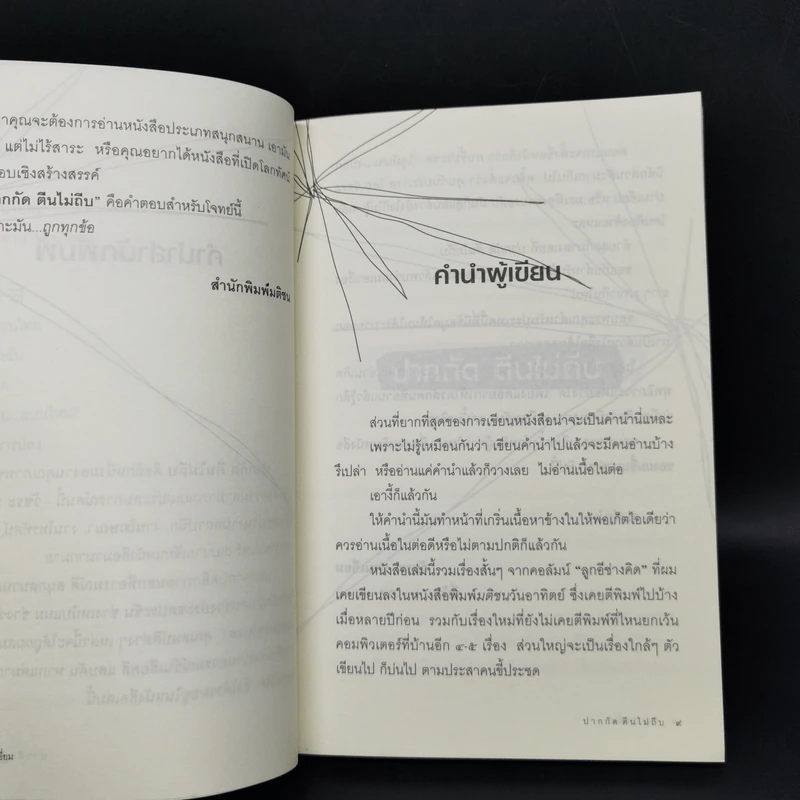 คุณจะต้องการอ่านหนังสือประเภทสนุกสนาน เอามัน
แต่ไม่ไร้สาระ หรือคุณอยากได้หนังสือที่เปิดโลกทัศน์
อบเชิงสร้างสรรค์
กกัด ตีนไม่ถีบ” คือคำตอบสำหรับโจทย์นี้
าะมัน...ถูกทุกข้อ
สำนักพิมพ์มติชน
คำนำผู้เขียน
ส่วนที่ยากที่สุดของการเขียนหนังสือน่าจะเป็นคำนำนี่แหละ
เพราะไม่รู้เหมือนกันว่า เขียนคำนำไปแล้วจะมีคนอ่านบ้าง
รึเปล่า หรืออ่านแค่คำนำแล้วก็วางเลย ไม่อ่านเนื้อในต่อ
เอางี้ก็แล้วกัน
ให้คำนำนี้มันทำหน้าที่เกริ่นเนื้อหาข้างในให้พอเก็ตไอเดียว่า
ควรอ่านเนื้อในต่อดีหรือไม่ตามปกติก็แล้วกัน
หนังสือเล่มนี้รวมเรื่องสั้นๆ จากคอลัมน์ “ลูกอีช่างคิด” ที่ผม
เคยเขียนลงในหนังสือพิมพ์มติชนวันอาทิตย์ ซึ่งเคยตีพิมพ์ไปบ้าง
เมื่อหลายปีก่อน รวมกับเรื่องใหม่ที่ยังไม่เคยตีพิมพ์ที่ไหนยกเว้น
คอมพิวเตอร์ที่บ้านอีก ๔-๕ เรื่อง ส่วนใหญ่จะเป็นเรื่องใกล้ๆ ตัว
เขียนไป ก็บ่นไป ตามประสาคนขี้ประชด
ปากกัด ตีนไม่ถีบ ๙